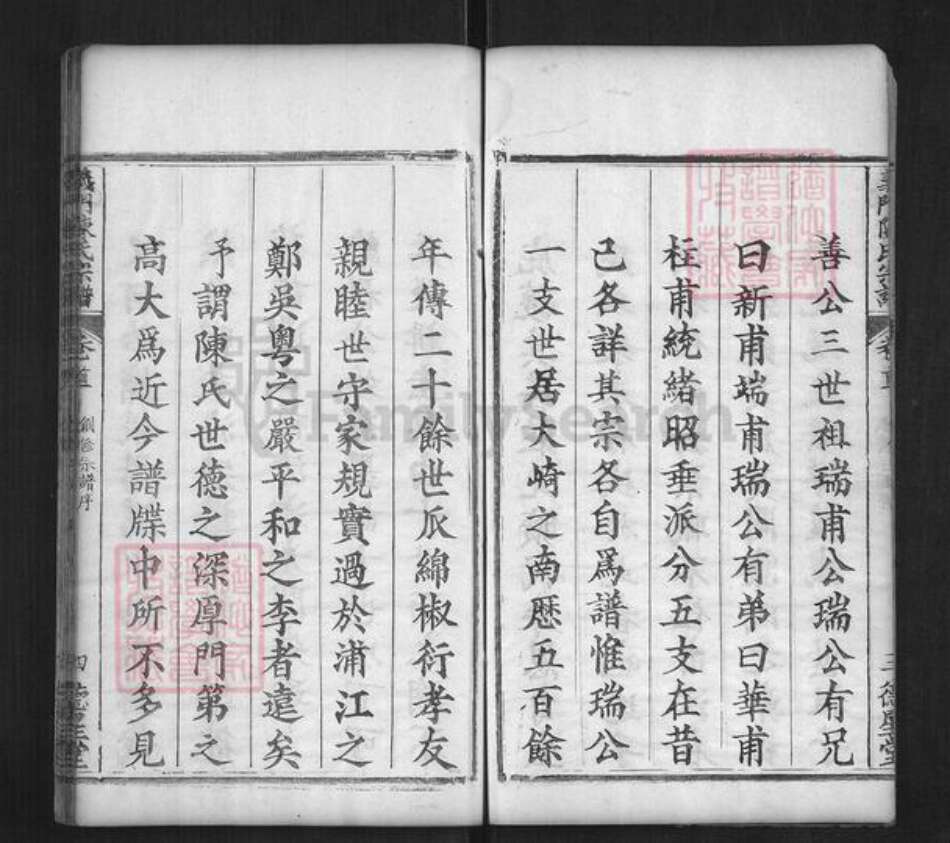 善公三世祖瑞甫公瑞公有兄
曰新甫端甫瑞公有弟曰華甫
柱甫統緒昭垂派分五支在昔
已各詳其宗各自爲譜惟瑞公
一支世居大崎之南歷五百餘
年傳二十餘世瓜綿椒衍孝友
親睦世守家規實過於浦江之
鄭吳粵之嚴平和之李者遠矣
予謂陳氏世德之深厚門第之
高大爲近今譜牒中所不多見
義門陳氏宗譜 卷首 創修宗譜序 四
FamilySearch